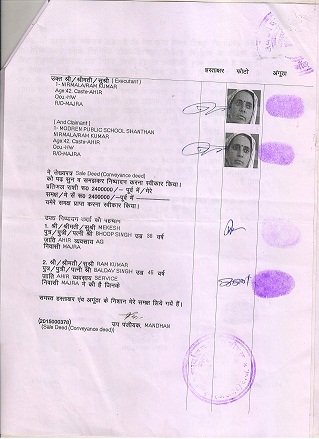 हस्ताक्षर फोटो अंगूठा
उक्त श्री/श्रीमती/सुश्री (Executant)
1- NIRMALA/RAM KUMAR
Age:42, Caste-AHIR
Ocu.-HW
R/O-MAJRA
(And Claimant)
1- MODREN PUBLIC SCHOOL SHANTHAN
NIRMALA/RAM KUMAR
Age:42, Caste-AHIR
Ocu.-HW
R/O-MAJRA
ने लेख्यपत्र Sale Deed (Conveyance deed)
को पढ़ सुन व समझकर निष्पादन करना स्वीकार किया।
प्रतिफल राशी रू० 2400000/- पूर्व में/मेरे
समक्ष/में से रू० 2400000/-पूर्व में
मेरे समक्ष प्राप्त करना स्वीकार किया।
उक्त निष्पादन कर्ता की पहचान
1. श्री/श्रीमती/सुश्री MEKESH
पुत्र/पुत्री/पत्नी श्री BHOOP SINGH उम्र वर्ष
जाति AHIR व्यवसाय AG
निवासी MAJRA
2. श्री/श्रीमती/सुश्री RAM KUMAR
पुत्र/पुत्री/पत्नी श्री BALDAV SINGH उम्र 45 वर्ष
जाति AHIR व्यवसाय SERVICE
निवासी MAJRA ने की है जिनके
समस्त हस्ताक्षर एवं अंगूठा के निशान मेरे समक्ष लिये गये हैं।
(2015000378) उप पंजीयक, MANDHAN
(Sale Deed (Conveyance deed))